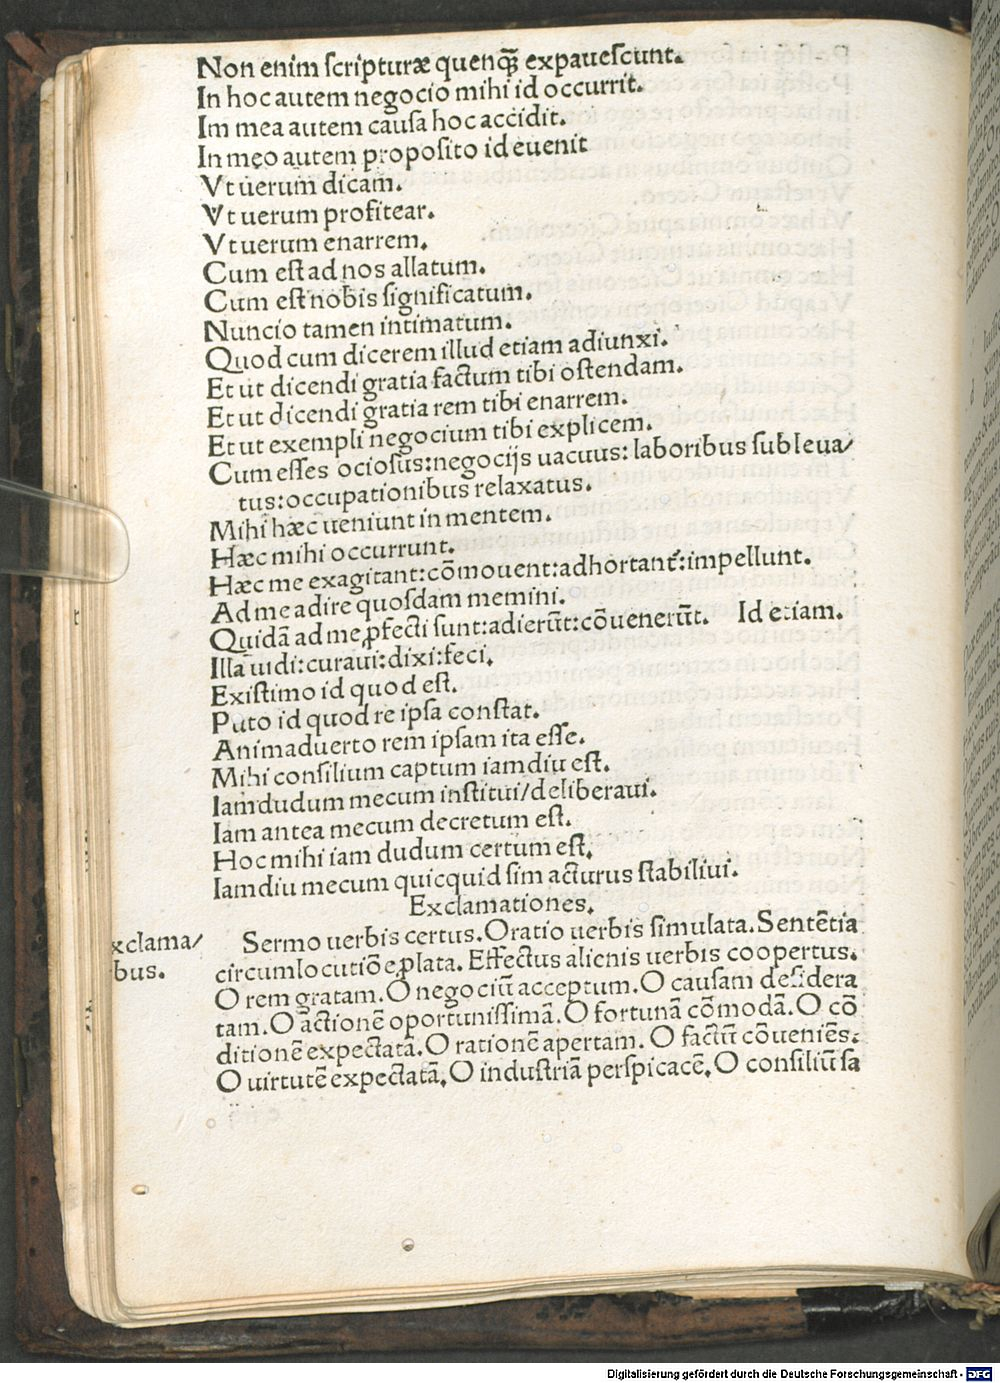 Non enim ſcripturæ quenꝗ̃ expaueſcunt.
In hoc autem negocio mihi id occurrit.
Im mea autem cauſa hoc accidit.
In meo autem propoſito id euenit
Vt uerum dicam.
Vt uerum profitear.
Vt uerum enarrem.
Cum eſt ad nos allatum.
Cum eſt nobis ſignificatum.
Nuncio tamen intimatum.
Quod cum dicerem illud etiam adiunxi.
Et ut dicendi gratia factum tibi oſtendam.
Et ut dicendi gratia rem tibi enarrem.
Et ut exempli negocium tibi explicem.
Cum eſſes ocioſus:negocijs uacuus: laboribus ſubleua/
tus:occupationibus relaxatus.
Mihi hæc ueniunt in mentem.
Hæc mihi occurrunt.
Hæc me exagitant:cõmouent:adhortant᷑:impellunt.
Ad me adire quoſdam memini.
Quidã ad me ꝓfecti ſunt:adierũt:cõuenerũt. Id etiam.
Illa uidi:curaui:dixi:feci.
Exiſtimo id quod eſt.
Puto id quod re ipſa conſtat.
Animaduerto rem ipſam ita eſſe.
Mihi conſilium captum iamdiu eſt.
Iamdudum mecum inſtitui/deliberaui.
Iam antea mecum decretum eſt.
Hoc mihi iam dudum certum eſt.
Iamdiu mecum quicquid ſim acturus ſtabiliui.
Exclamationes.
xclama/
bus.
Sermo uerbis certus.Oratio uerbis ſimulata.Sentẽtia
circumlocutiõe ꝓlata. Effectus alienis uerbis coopertus.
O rem gratam.O negociũ acceptum.O cauſam deſidera
tam.O actionẽ oportuniſſimã.O fortunã cõmodã.O cõ
ditionẽ expectatã.O rationẽ apertam. O factũ cõueniẽs.
O uirtutẽ expectatã.O induſtriã perſpicacẽ.O conſiliũ ſa
Digitalisierung gefördert durch die Deutsche Forschungsgemeinschaft - DFG